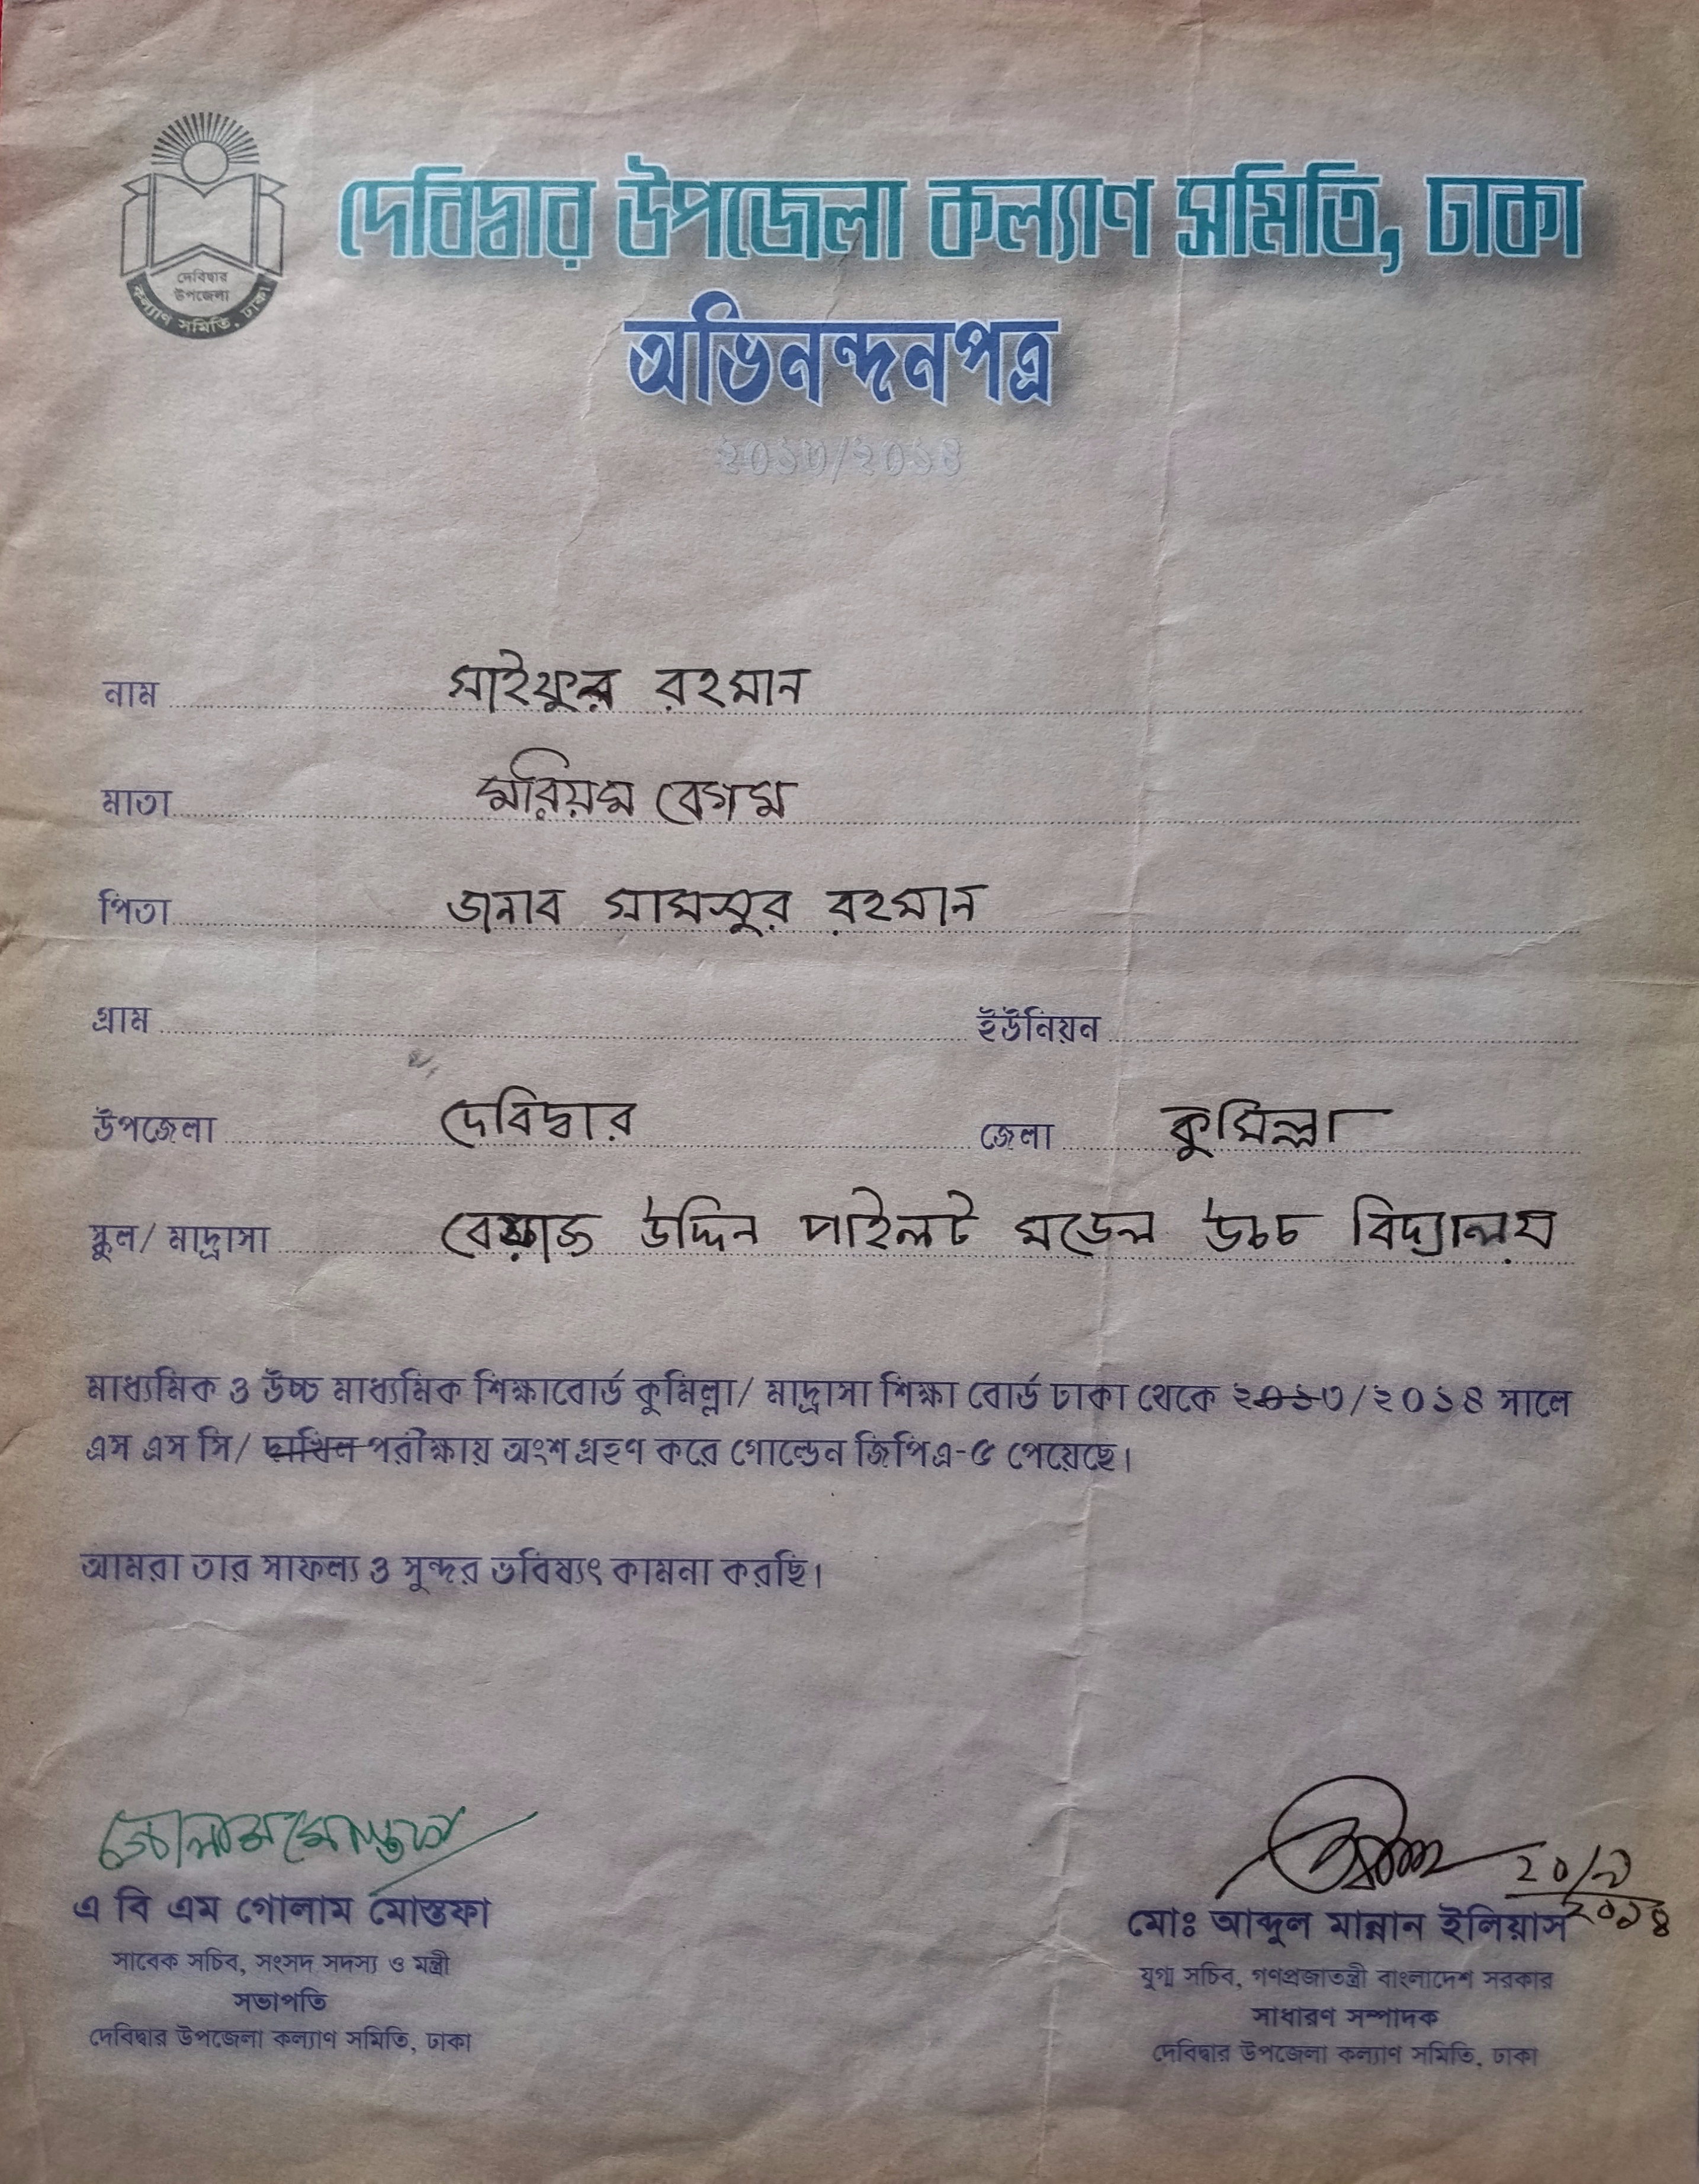 দেবিদ্বার উপজেলা কল্যাণ সমিতি, ঢাকা
দেবিদ্বার
উপজেলা
কল্যাণ সমিতি, ঢাকা
অভিনন্দনপত্র
২০১৩/২০১৪
নাম সাইফুর রহমান
মাতা মরিয়ম বেগম
পিতা জনাব সামসুর রহমান
গ্রাম ইউনিয়ন
উপজেলা দেবিদ্বার জেলা কুমিল্লা
স্কুল/ মাদ্রাসা উদ্দিন পাইলট মডেল উচ্চ বিদ্যালয়
মাধ্যমিক ও উচ্চ মাধ্যমিক শিক্ষাবোর্ড কুমিল্লা/ মাদ্রাসা শিক্ষা বোর্ড ঢাকা থেকে ২০১৩/২০১৪ সালে
এস এস সি/ দাখিল পরীক্ষায় অংশ গ্রহণ করে গোল্ডেন জিপিএ-৫ পেয়েছে।
আমরা তার সাফল্য ও সুন্দর ভবিষ্যৎ কামনা করছি।
গোলাম মোস্তফা
এ বি এম গোলাম মোস্তফা
সাবেক সচিব, সংসদ সদস্য ও মন্ত্রী
সভাপতি
দেবিদ্বার উপজেলা কল্যাণ সমিতি, ঢাকা
২০/৯
২০১৪
মোঃ আব্দুল মান্নান ইলিয়াস
যুগ্ম সচিব, গণপ্রজাতন্ত্রী বাংলাদেশ সরকার
সাধারণ সম্পাদক
দেবিদ্বার উপজেলা কল্যাণ সমিতি, ঢাকা